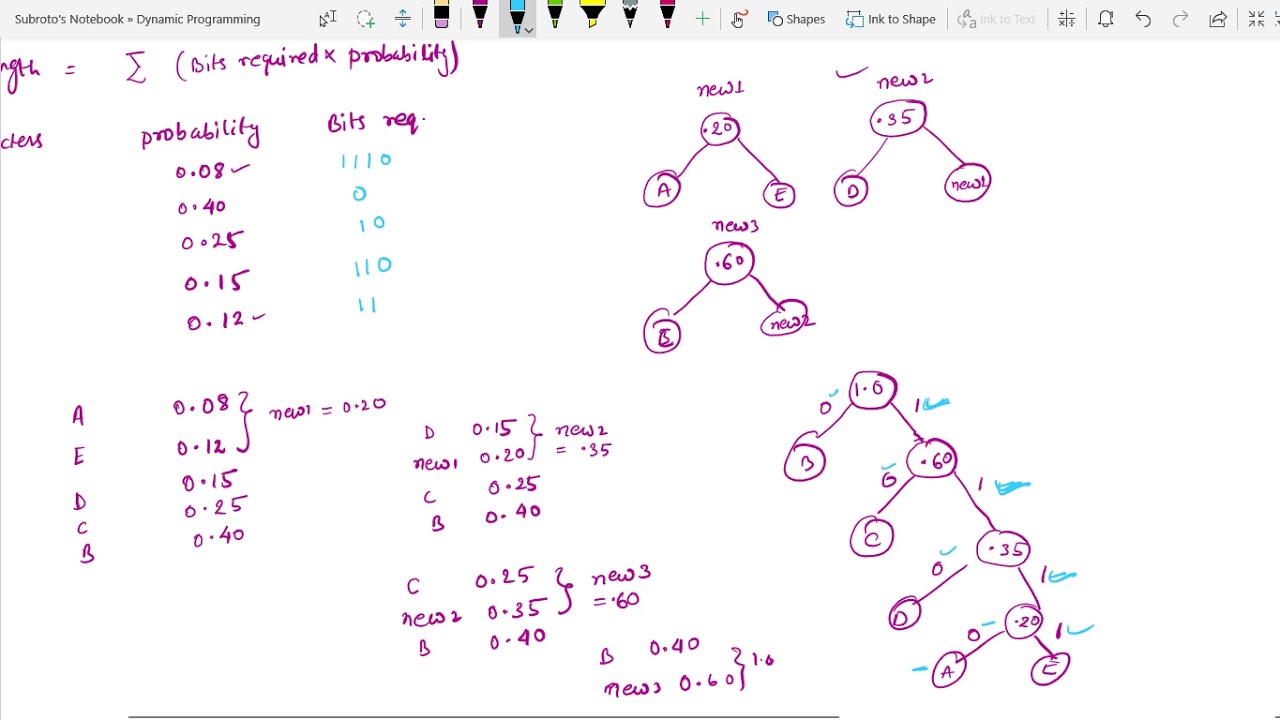 Subroto's Notebook » Dynamic Programming
Shapes
Ink to Shape
Ink to Text
ngth = Σ (Bits required × probability)
cters probability Bits req.
0.08 1110
0.40 0
0.25 10
0.15 110
0.12 11
new1
.20
A E
new2
.35
D new1
new3
.60
new2
A 0.08
E 0.12
new1 = 0.20
D 0.15
C 0.25
B 0.40
D 0.15
new1 0.20
new2
= .35
C 0.25
B 0.40
C 0.25
new2 0.35
new3
= .60
B 0.40
B 0.40
new3 0.60
1.0
1.0
0 1
B .60
0 1
C .35
0 1
D .20
0 1
A E